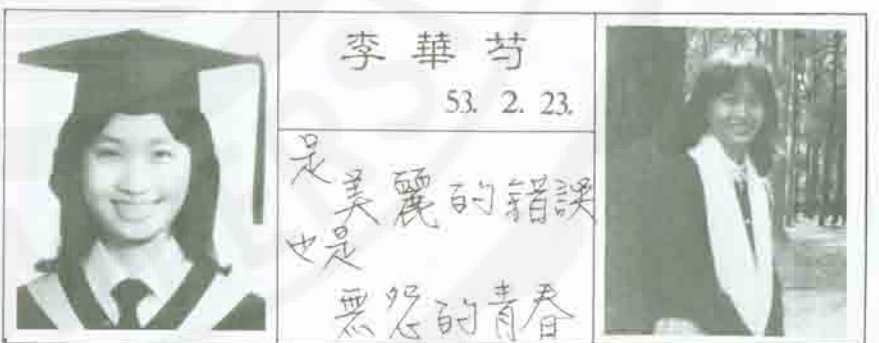 李華芍
53. 2. 23.
是
美麗的錯誤
也是
無怨的青春